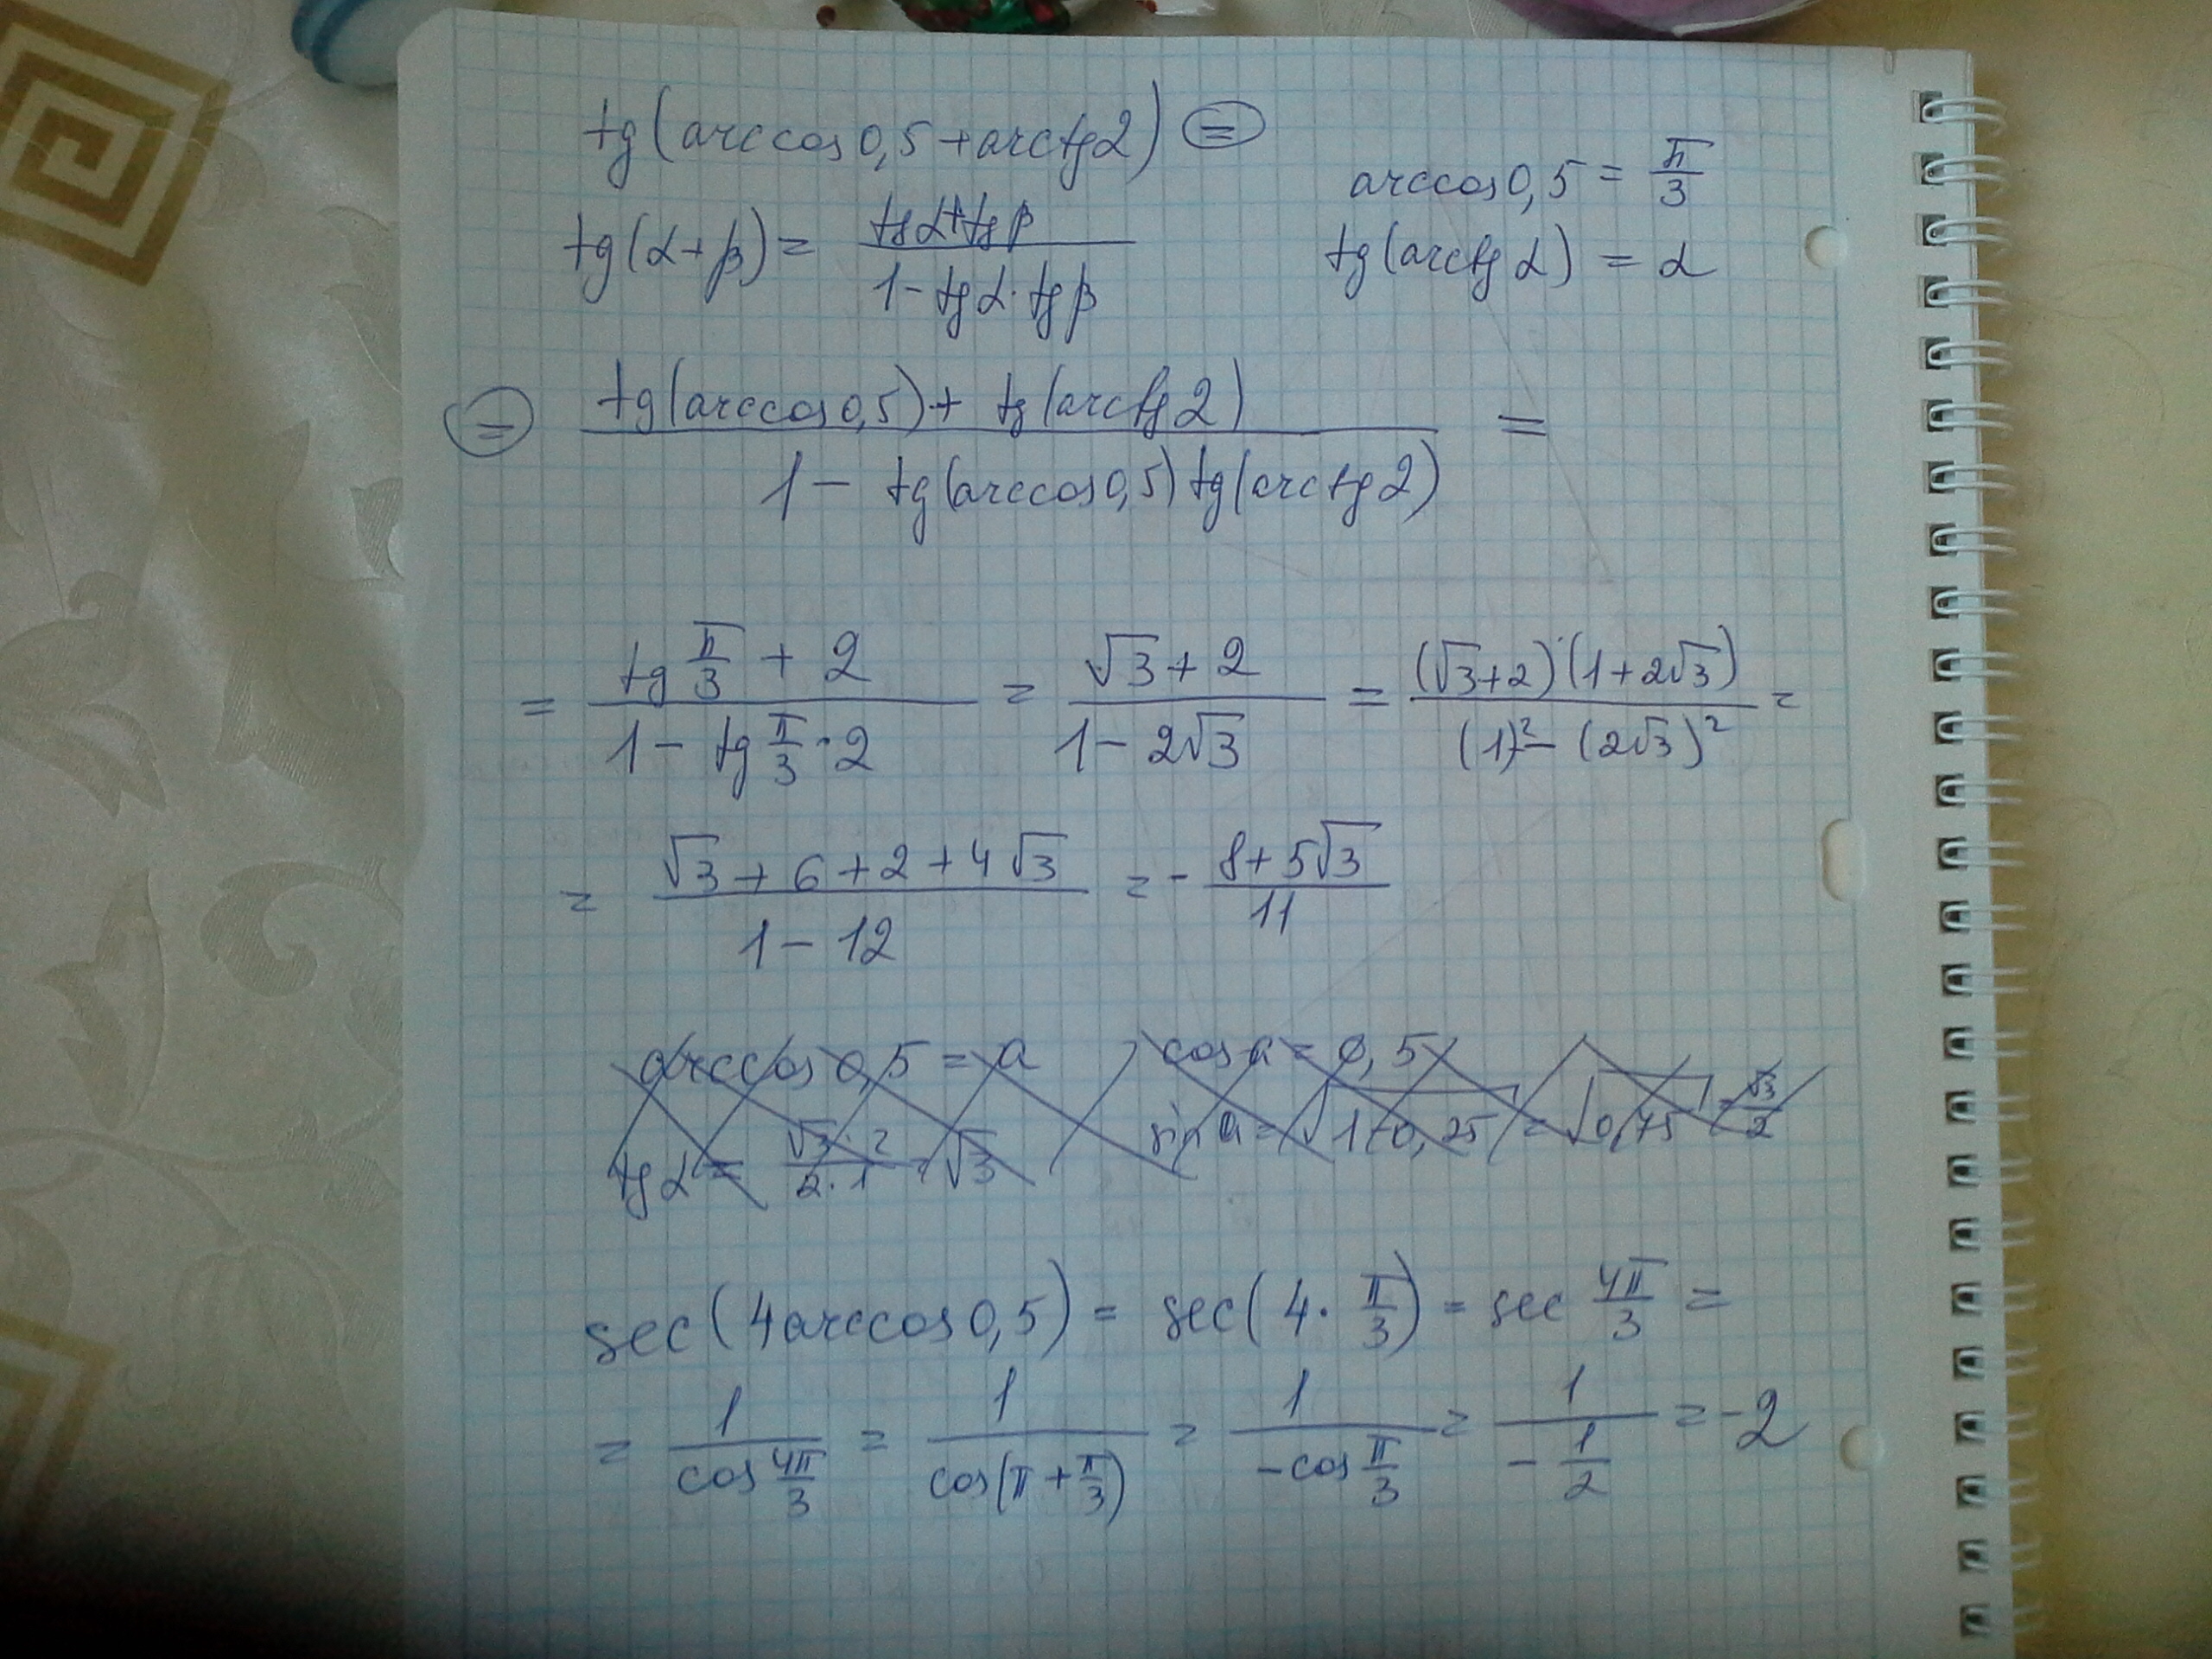 tg(arccos0,5+arctg2) =
arccos0,5 = π/3
tg(α+β) = (tgα+tgβ)/(1-tgα·tgβ)
tg(arctgα) = α
= (tg(arccos0,5)+ tg(arctg2))/(1- tg(arccos0,5)tg(arctg2)) =
= (tg π/3 + 2)/(1- tg π/3 · 2) = (√3+2)/(1-2√3) = ((√3+2)·(1+2√3))/((1)²-(2√3)²) =
= (√3+6+2+4√3)/(1-12) = - (8+5√3)/11
arccos0,5 = a cosa = 0,5
sin a = √(1-0,25) = √0,75 = √3/2
tgα = (√3·2)/(2·1) = √3
sec(4arccos0,5) = sec(4· π/3) = sec 4π/3 =
= 1/(cos 4π/3) = 1/(cos(π+π/3)) = 1/(-cos π/3) = 1/(-1/2) = -2